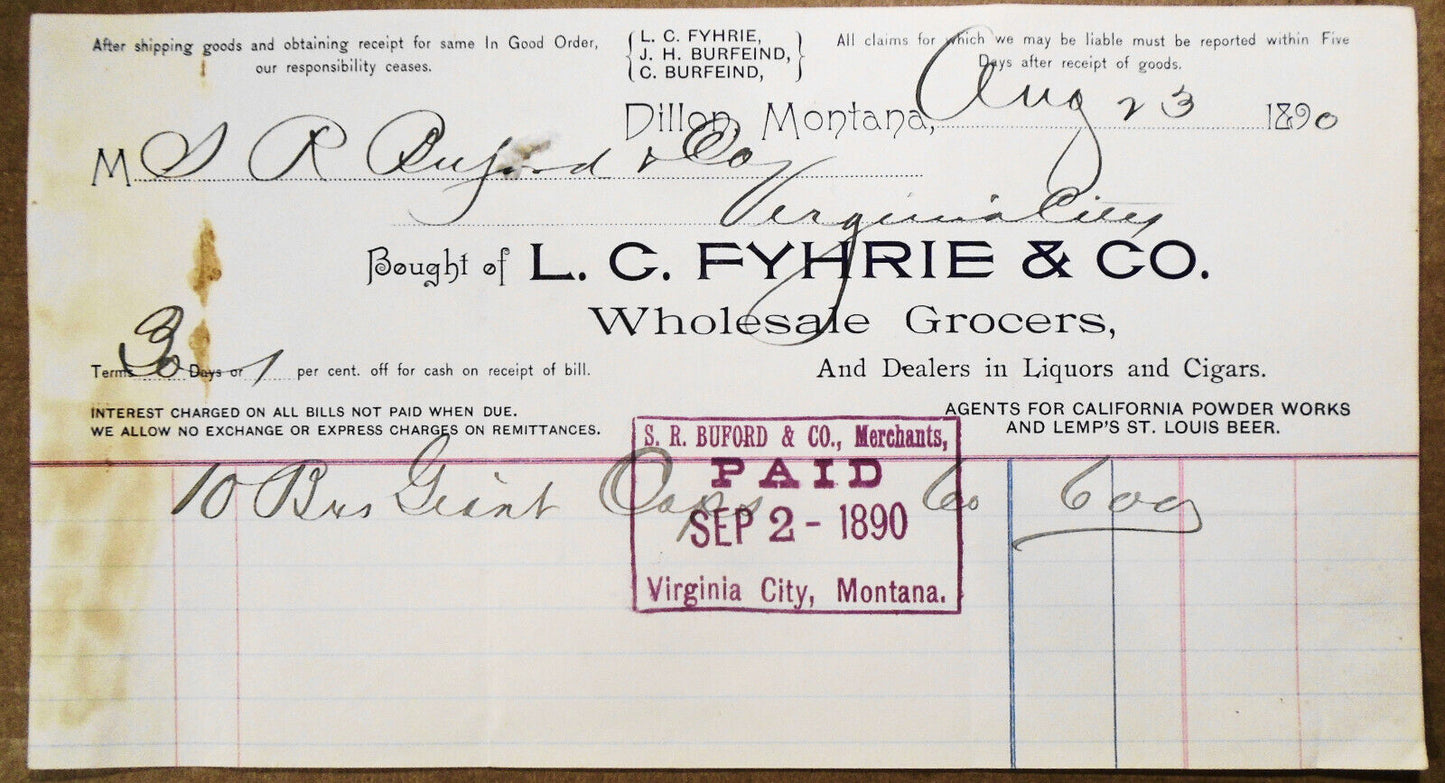 After shipping goods and obtaining receipt for same In Good Order,
our responsibility ceases.
L. C. FYHRIE,
J. H. BURFEIND,
C. BURFEIND,
All claims for which we may be liable must be reported within Five
Days after receipt of goods.
Dillon, Montana, Aug 23 1890
M S R Buford & Co
Virginia City
Bought of L. C. FYHRIE & CO.
Wholesale Grocers,
Terms 30 Days or 1 per cent. off for cash on receipt of bill.
And Dealers in Liquors and Cigars.
INTEREST CHARGED ON ALL BILLS NOT PAID WHEN DUE.
WE ALLOW NO EXCHANGE OR EXPRESS CHARGES ON REMITTANCES.
AGENTS FOR CALIFORNIA POWDER WORKS
AND LEMP'S ST. LOUIS BEER.
10 Bxs Giant Caps 60 600
S. R. BUFORD & CO., Merchants,
PAID
SEP 2 - 1890
Virginia City, Montana.